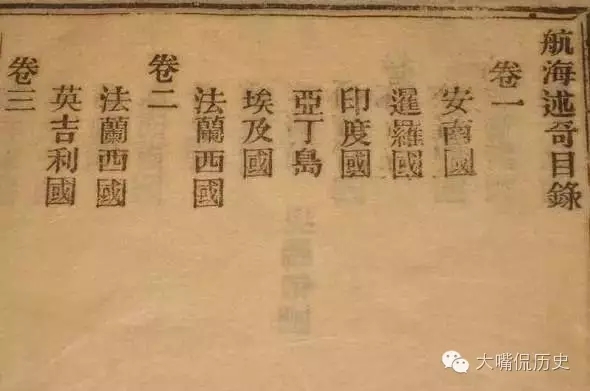 航海述奇目錄
卷一
安南國
暹羅國
印度國
亞丁島
埃及國
法蘭西國
卷二
法蘭西國
英吉利國
卷三
大嘴侃历史